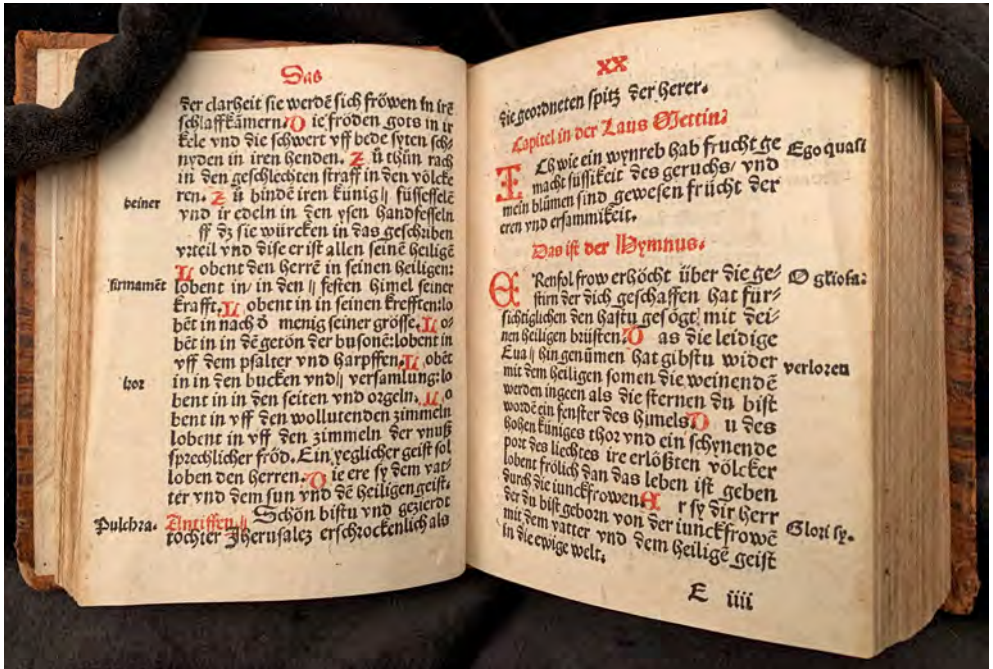 Das
der clarheit sie werdē sich fröwen in irē
schlaffkāmern. D ie fröden gots in ir
kele vnd die schwert vff bede syten sch⸗
nyden in iren henden. Z ů thůn rach
in den geschlechten straff in den völcke
ren. Z ů bindē iren künig || füsseffelē
beiner
vnd ir edeln in den ysen handfesseln
ff dz sie würcken in das geschriben
vrteil vnd dise er ist allen seinē heiligē
L obent den herrē in seinen heiligen:
firmamēt
lobent in/ in den || festen himel seiner
krafft. L obent in in seinen krefften: lo
bēt in nach d menig seiner grösse. L o⸗
bēt in in dē getön der busonē: lobent in
vff dem psalter vnd harpffen. L obēt
kor
in in den bucken vnd || versamlung: lo
bent in in den seiten vnd orgeln. L o
bent in vff den wollutenden zimmeln
lobent in vff den zimmeln der vnuß
sprechlicher fröd. Ein yeglicher geist sol
loben den herren. D ie ere sy dem vat⸗
ter vnd dem sun vnd dē heiligen geist.
Pulchra.
Antiffen || Schön bistu vnd gezierdt
tochter Jherusalez erschrockenlich als
XX
die geordneten spitz der herer.
Capitel in der Laus Mettin?
ICh wie ein wynreb hab frucht ge
Ego quasi
macht süssikeit des geruchs/ vnd
mein blůmen sind gewesen frücht der
eren vnd ersammikeit.
Das ist der Hymnus.
ERensol frow erhöcht über die ge⸗
O gliosa:
stirn der dich geschaffen hat für⸗
sichtiglichen den hastu gesögt/ mit dei⸗
nen heiligen brüsten. D as die leidige
Eua || hin genümen hat gibstu wider
verloren
mit dem heiligen somen die weinendē
werden ingeen als die sternen du bist
wordē ein fenster des himels D u des
hohen küniges thor vnd ein schynende
port des liechtes ire erlößten völcker
lobent frölich dan das leben ist geben
durch die iunckfrowen E r sy dir herr
der du bist geborn von der iunckfrowē
Glori sy.
mit dem vatter vnd dem heiligē geist
in die ewige welt.
E iiii